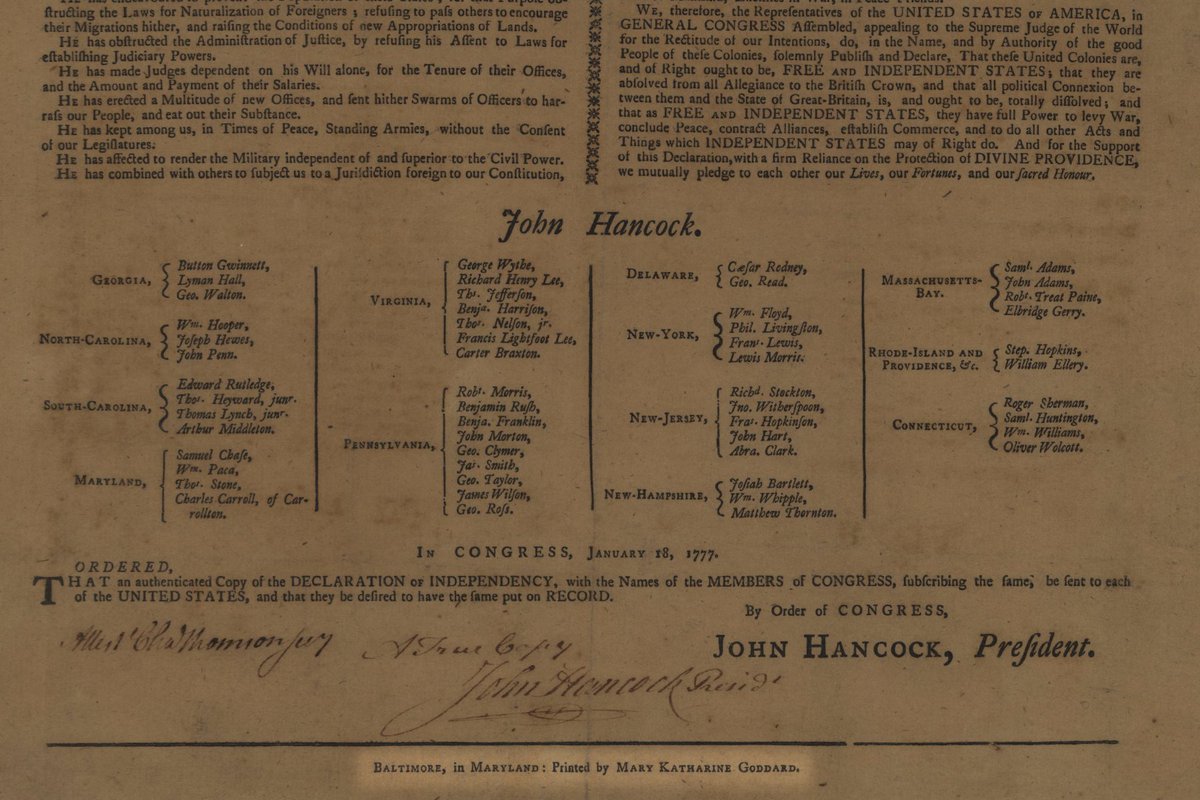 HE has endeavoured to prevent the Population of theſe States ; for that Purpoſe ob-
ſtructing the Laws for Naturalization of Foreigners ; refuſing to paſs others to encourage
their Migrations hither, and raiſing the Conditions of new Appropriations of Lands.
HE has obſtructed the Adminiſtration of Juſtice, by refuſing his Aſſent to Laws for
eſtabliſhing Judiciary Powers.
HE has made Judges dependent on his Will alone, for the Tenure of their Offices,
and the Amount and Payment of their Salaries.
HE has erected a Multitude of new Offices, and ſent hither Swarms of Officers to har-
raſs our People, and eat out their Subſtance.
HE has kept among us, in Times of Peace, Standing Armies, without the Conſent
of our Legiſlatures.
HE has affected to render the Military independent of and ſuperior to the Civil Power.
HE has combined with others to ſubject us to a Juriſdiction foreign to our Conſtitution,
in War, in Peace Friends.
WE, therefore, the Repreſentatives of the UNITED STATES OF AMERICA, in
GENERAL CONGRESS Aſſembled, appealing to the Supreme Judge of the World
for the Rectitude of our Intentions, do, in the Name, and by Authority of the good
People of theſe Colonies, ſolemnly Publiſh and Declare, That theſe United Colonies are,
and of Right ought to be, FREE AND INDEPENDENT STATES ; that they are
abſolved from all Allegiance to the Britiſh Crown, and that all political Connexion be-
tween them and the State of Great-Britain, is, and ought to be, totally diſſolved ; and
that as FREE AND INDEPENDENT STATES, they have full Power to levy War,
conclude Peace, contract Alliances, eſtabliſh Commerce, and to do all other Acts and
Things which INDEPENDENT STATES may of Right do. And for the Support
of this Declaration, with a firm Reliance on the Protection of DIVINE PROVIDENCE,
we mutually pledge to each other our Lives, our Fortunes, and our ſacred Honour.
John Hancock.
GEORGIA,
Button Gwinnett,
Lyman Hall,
Geo. Walton.
NORTH-CAROLINA,
Wm. Hooper,
Joſeph Hewes,
John Penn.
SOUTH-CAROLINA,
Edward Rutledge,
Thos. Heyward, junr.
Thomas Lynch, junr.
Arthur Middleton.
MARYLAND,
Samuel Chaſe,
Wm. Paca,
Thos. Stone,
Charles Carroll, of Car-
rollton.
VIRGINIA,
George Wythe,
Richard Henry Lee,
Ths. Jefferſon,
Benja. Harriſon,
Thos. Nelſon, jr.
Francis Lightfoot Lee,
Carter Braxton.
PENNSYLVANIA,
Robt. Morris,
Benjamin Ruſh,
Benja. Franklin,
John Morton,
Geo. Clymer,
Jas. Smith,
Geo. Taylor,
James Wilſon,
Geo. Roſs.
DELAWARE,
Cæſar Rodney,
Geo. Read.
NEW-YORK,
Wm. Floyd,
Phil. Livingſton,
Frans. Lewis,
Lewis Morris.
NEW-JERSEY,
Richd. Stockton,
Jno. Witherſpoon,
Fras. Hopkinſon,
John Hart,
Abra. Clark.
NEW-HAMPSHIRE,
Joſiah Bartlett,
Wm. Whipple,
Matthew Thornton.
MASSACHUSETTS-
BAY.
Saml. Adams,
John Adams,
Robt. Treat Paine,
Elbridge Gerry.
RHODE-ISLAND AND
PROVIDENCE, &c.
Step. Hopkins,
William Ellery.
CONNECTICUT,
Roger Sherman,
Saml. Huntington,
Wm. Williams,
Oliver Wolcott.
IN CONGRESS, JANUARY 18, 1777.
ORDERED,
THAT an authenticated Copy of the DECLARATION OF INDEPENDENCY, with the Names of the MEMBERS of CONGRESS, ſubſcribing the ſame, be ſent to each
of the UNITED STATES, and that they be deſired to have the ſame put on RECORD.
By Order of CONGRESS,
JOHN HANCOCK, Preſident.
Attest Chas Thomson secy
A True Copy
John Hancock Presidt
BALTIMORE, in MARYLAND: Printed by MARY KATHARINE GODDARD.